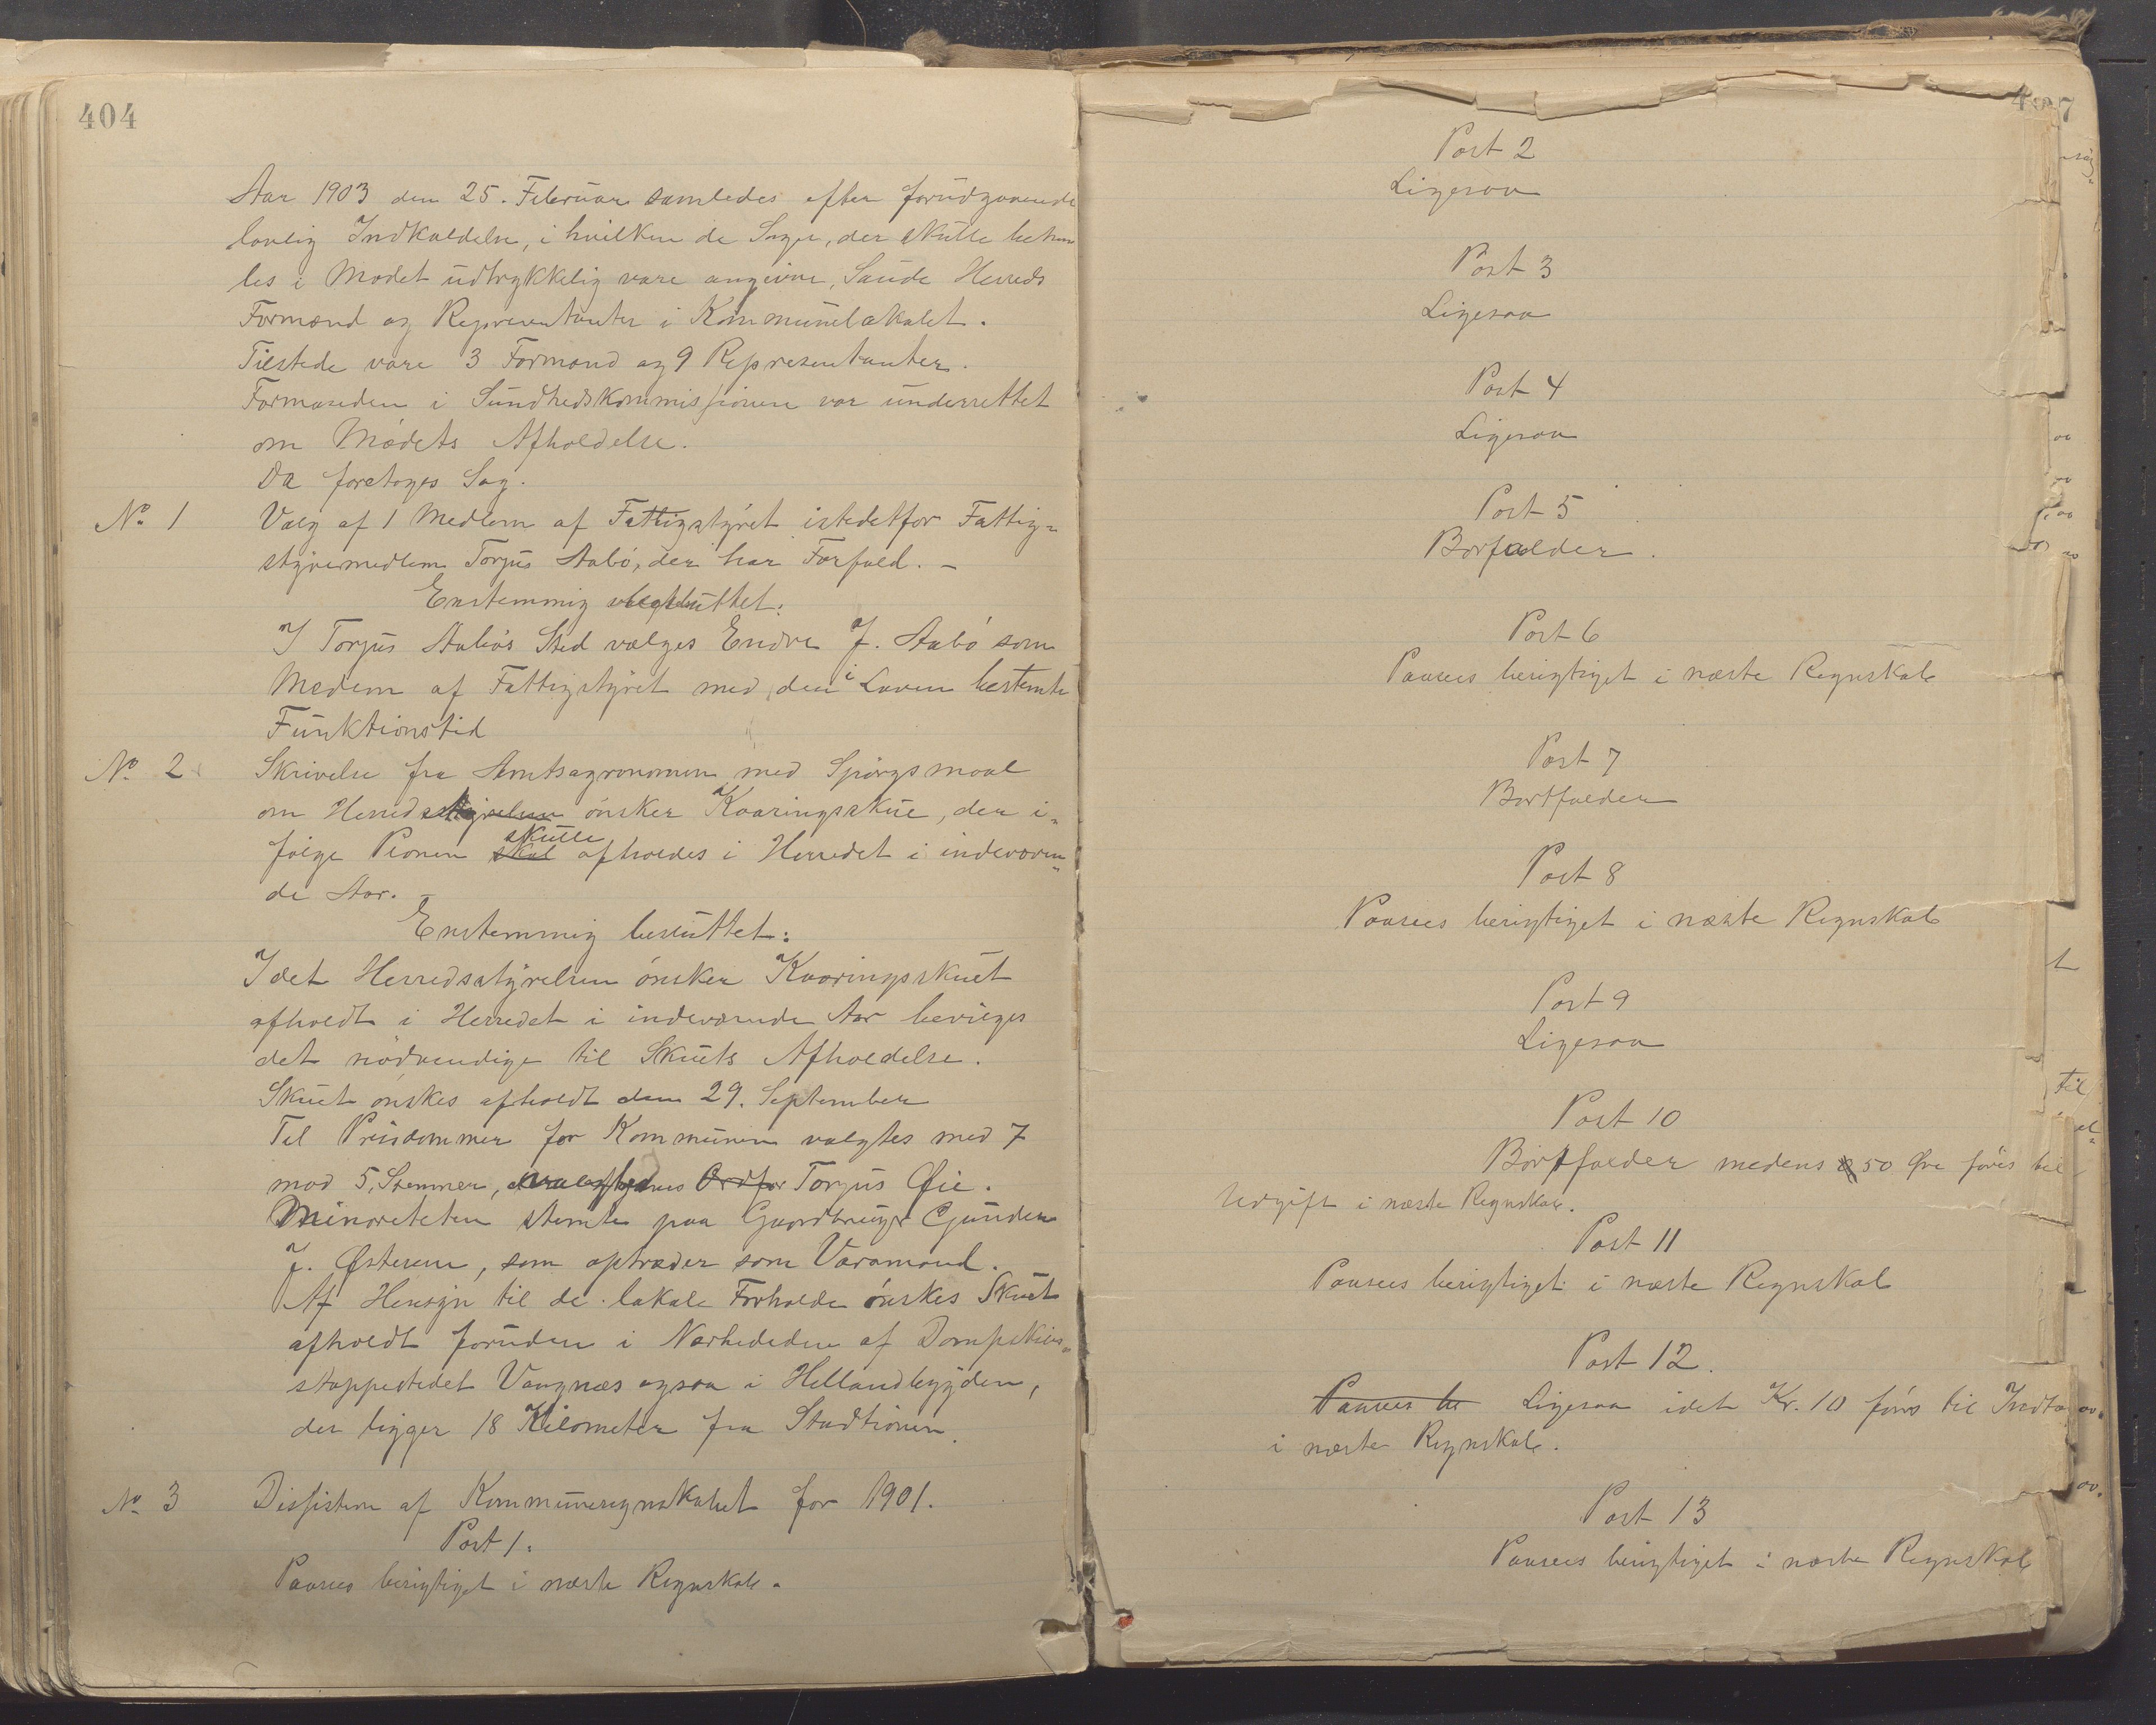 404
Aar 1903 den 25. Februar samledes efter forudgaaende
lovlig Indkaldelse, i hvilken de Sager, der skulle behan
les i Mødet udtrykkelig vare angivne, Saude Herreds
Formænd og Representanter i Kommunelokalet.
Tilstede vare 3 Formænd og 9 Representanter.
Formanden i Sundhedskommissionen var underrettet
om Mødets Afholdelse.
Da foretoges Sag.
No 1 Valg af 1 Medlem af Fattigstyret istedetfor Fattig-
styremedlem Torjus Aabø, der har Forfald. -
Enstemmig besluttet:
I Torjus Aabøs Sted vælges Endre J. Aabø som
Medlem af Fattigstyret med den i Loven bestemte
Funktionstid
No 2 Skrivelse fra Amtsagronomen med Spørgsmaal
om Herredsstyrelsen ønsker Kaaringsskue, der i-
følge Planen skal skulle afholdes i Herredet i indeværen-
de Aar. -
Enstemmig besluttet:
Idet Herredsstyrelsen ønsker Kaaringsskuet
afholdt i Herredet i indeværende Aar bevilges
det nødvendige til Skuets Afholdelse.
Skuet ønskes afholdt den 29. September
Til Prisdommer for Kommunen valgtes med 7
mod 5 Stemmer, Ordfør Torjus Øie.
Minoriteten stemte paa Gaardbruger Gunder
J. Østerem, som optræder som Varamand.
Af Hensyn til de lokale Forholde ønskes Skuet
afholdt foruden i Nærhededen af Dampskibs-
stoppestedet Vangnæs ogsaa i Hellandbygden,
der ligger 18 Kilometer fra Stadtionen.
No 3 Desision af Kommuneregnskabet for 1901.
Post 1.
Paasees berigtiget i næste Regnskab.
407
Post 2
Ligesaa
Post 3
Ligesaa
Post 4
Ligesaa
Post 5
Borfalder.
Post 6
Paasees berigtiget i næste Regnskab
Post 7
Bortfalder
Post 8
Paasees berigtiget i næste Regnskab
Post 9
Ligesaa
Post 10
Bortfalder medens 50 Øre føres til
Udgift i næste Regnskab.
Post 11
Paasees berigtiget i næste Regnskab
Post 12.
Paasees be Ligesaa idet Kr. 10 føres til Indtæ
i næste Regnskab.
Post 13
Paasees berigtiget i næste Regnskab